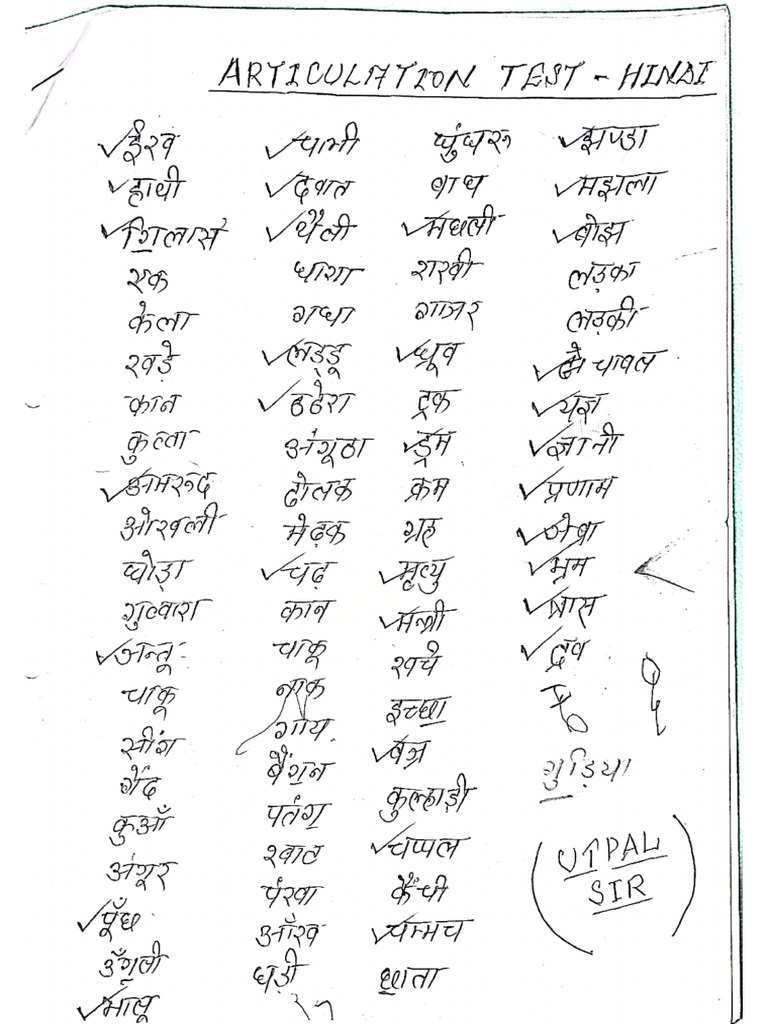 ARTICULATION TEST - HINDI
ईख चाभी घुंघरू झण्डा
हाथी दवात बाघ मझला
गिलास थैली मछली बोझ
एक धागा राखी लड़का
केला गधा गाजर लड़की
खड़े लड्डू ध्रूव चावल
कान ठठेरा ट्रक यज्ञ
कुत्ता अंगूठा ड्रम ज्ञानी
अमरूद ढोलक क्रम प्रणाम
ओखली मेढ़क ग्रह जेब्रा
घोड़ा चढ़ मृत्यु भ्रम
गुब्बारा कान मन्त्री ब्रास
जन्तू चाकू खर्च द्रव
चाकू नाक इच्छा
सींग गाय वज्र गुड़िया
गेंद बैंगन कुल्हाड़ी
कुआँ पतंग चप्पल UTPAL
अंगूर खाट कैंची SIR
पूँछ पंखा चम्मच
उँगली आँख छाता
भालू घड़ी